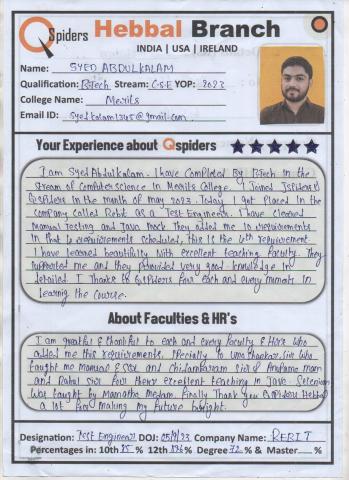 QSpiders Hebbal Branch
INDIA | USA | IRELAND
Name: SYED ABDULKALAM
Qualification: BTech Stream: C.S.E YOP: 2023
College Name: Merits
Email ID: syedkalam1345@gmail.com
Your Experience about Qspiders
I am Syed Abdulkalam. I have Completed By BTech in the
stream of Computerscience in Merits College. I Joined JSpiders &
QSpiders in the month of may 2023. Today I got Placed in the
company called Rebit as a Test Engineer. I have cleared
Manual Testing and Java Mock They added me 10 requirements
In that 6 requirements Scheduled, this is the 6th requirement.
I have learned beautifully with excellent teaching faculty. They
supported me and they provided very good knowledge in
detailed I Thanks to QSpiders for each and every moments in
learning the course.
About Faculties & HR's
I am greatful & thankful to each and every faculty & Hr's who
added me this requirements, specially to Umashankar sir who
taught me manual & SQL and Chidambaram sir & Anupama mam
and Rahul sir for there excellent teaching in Java. Selenium
was taught by Mamatha Madam. Finally Thank you QSpiders Hebbal
a lot for making my future bright.
Designation: Test Engineer DOJ: 05/9/23 Company Name: REBIT
Percentages in: 10th 85 % 12th % Degree 72 % & Master %